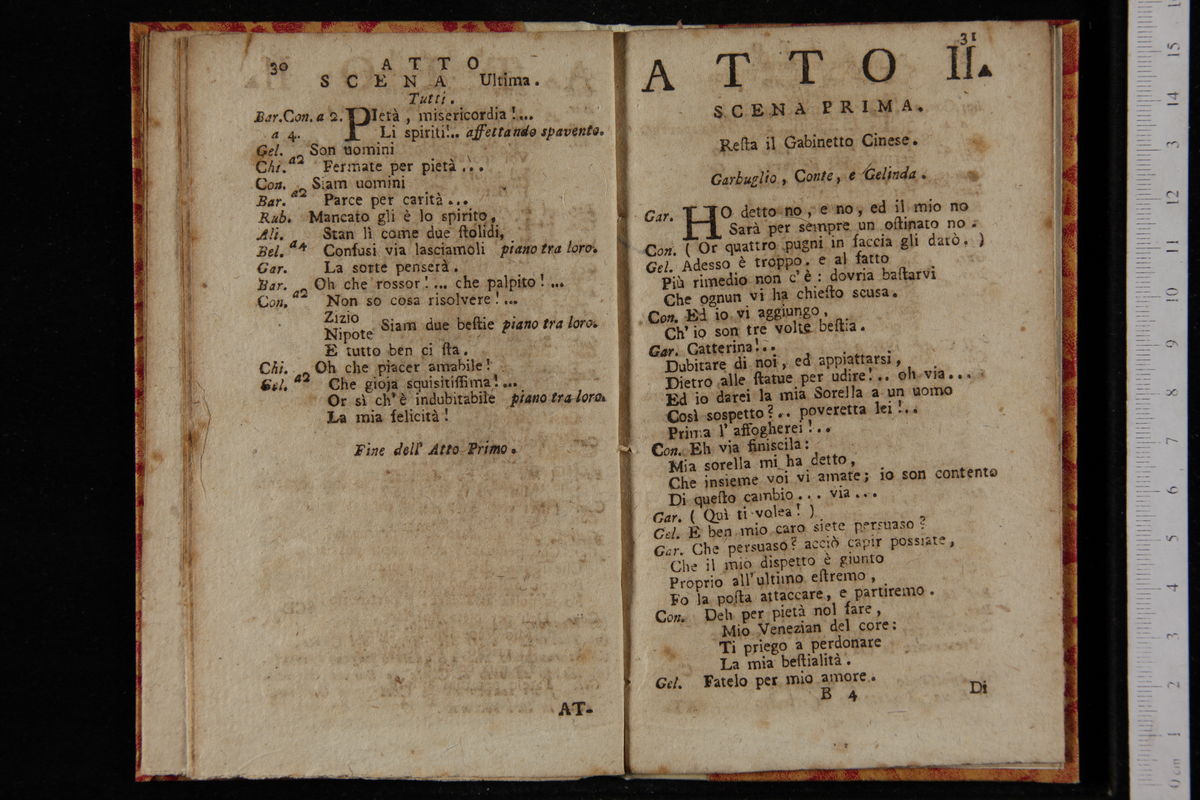 30 ATTO
SCENA Ultima.
Tutti.
Bar.Con. a 2. PIetà, misericordia!...
a 4. Li spiriti!.. affettando spavento.
Gel. a2 Son uomini
Chi. Fermate per pietà...
Con. a2 Siam uomini
Bar. Parce per carità...
Rub. Mancato gli è lo spirito,
Ali. a4 Stan lì come due ſtolidi,
Bel. Confusi via lasciamoli piano tra loro.
Gar. La sorte penserà.
Bar. a2 Oh che rossor!... che palpito!...
Con. Non so cosa risolvere!...
Zizio
Nipote Siam due beſtie piano tra loro.
E tutto ben ci ſta.
Chi. a2 Oh che piacer amabile!
Gel. Che gioja squisitiſſima!...
Or sì ch'è indubitabile piano tra loro.
La mia felicità!
Fine dell' Atto Primo.
AT-
31
ATTO II.
SCENA PRIMA.
Reſta il Gabinetto Cinese.
Garbuglio, Conte, e Gelinda.
Gar. HO detto no, e no, ed il mio no
Sarà per sempre un oſtinato no.
Con. ( Or quattro pugni in faccia gli darò. )
Gel. Adesso è troppo. e al fatto
Più rimedio non c'è: dovria baſtarvi
Che ognun vi ha chieſto scusa.
Con. Ed io vi aggiungo,
Ch' io son tre volte beſtia.
Gar. Catterina!..
Dubitare di noi, ed appiattarsi,
Dietro alle ſtatue per udire!.. oh via...
Ed io darei la mia Sorella a un uomo
Così sospetto?.. poveretta lei!..
Prima l' affogherei!..
Con. Eh via finiscila:
Mia sorella mi ha detto,
Che insieme voi vi amate; io son contento
Di queſto cambio... via...
Gar. ( Quì ti volea! )
Gel. E ben mio caro siete persuaso?
Gar. Che persuaso? acciò capir possiate,
Che il mio dispetto è giunto
Proprio all'ultimo eſtremo,
Fo la poſta attaccare, e partiremo.
Con. Deh per pietà nol fare,
Mio Venezian del core:
Ti priego a perdonare
La mia beſtialità.
Gel. Fatelo per mio amore.
B 4 Di